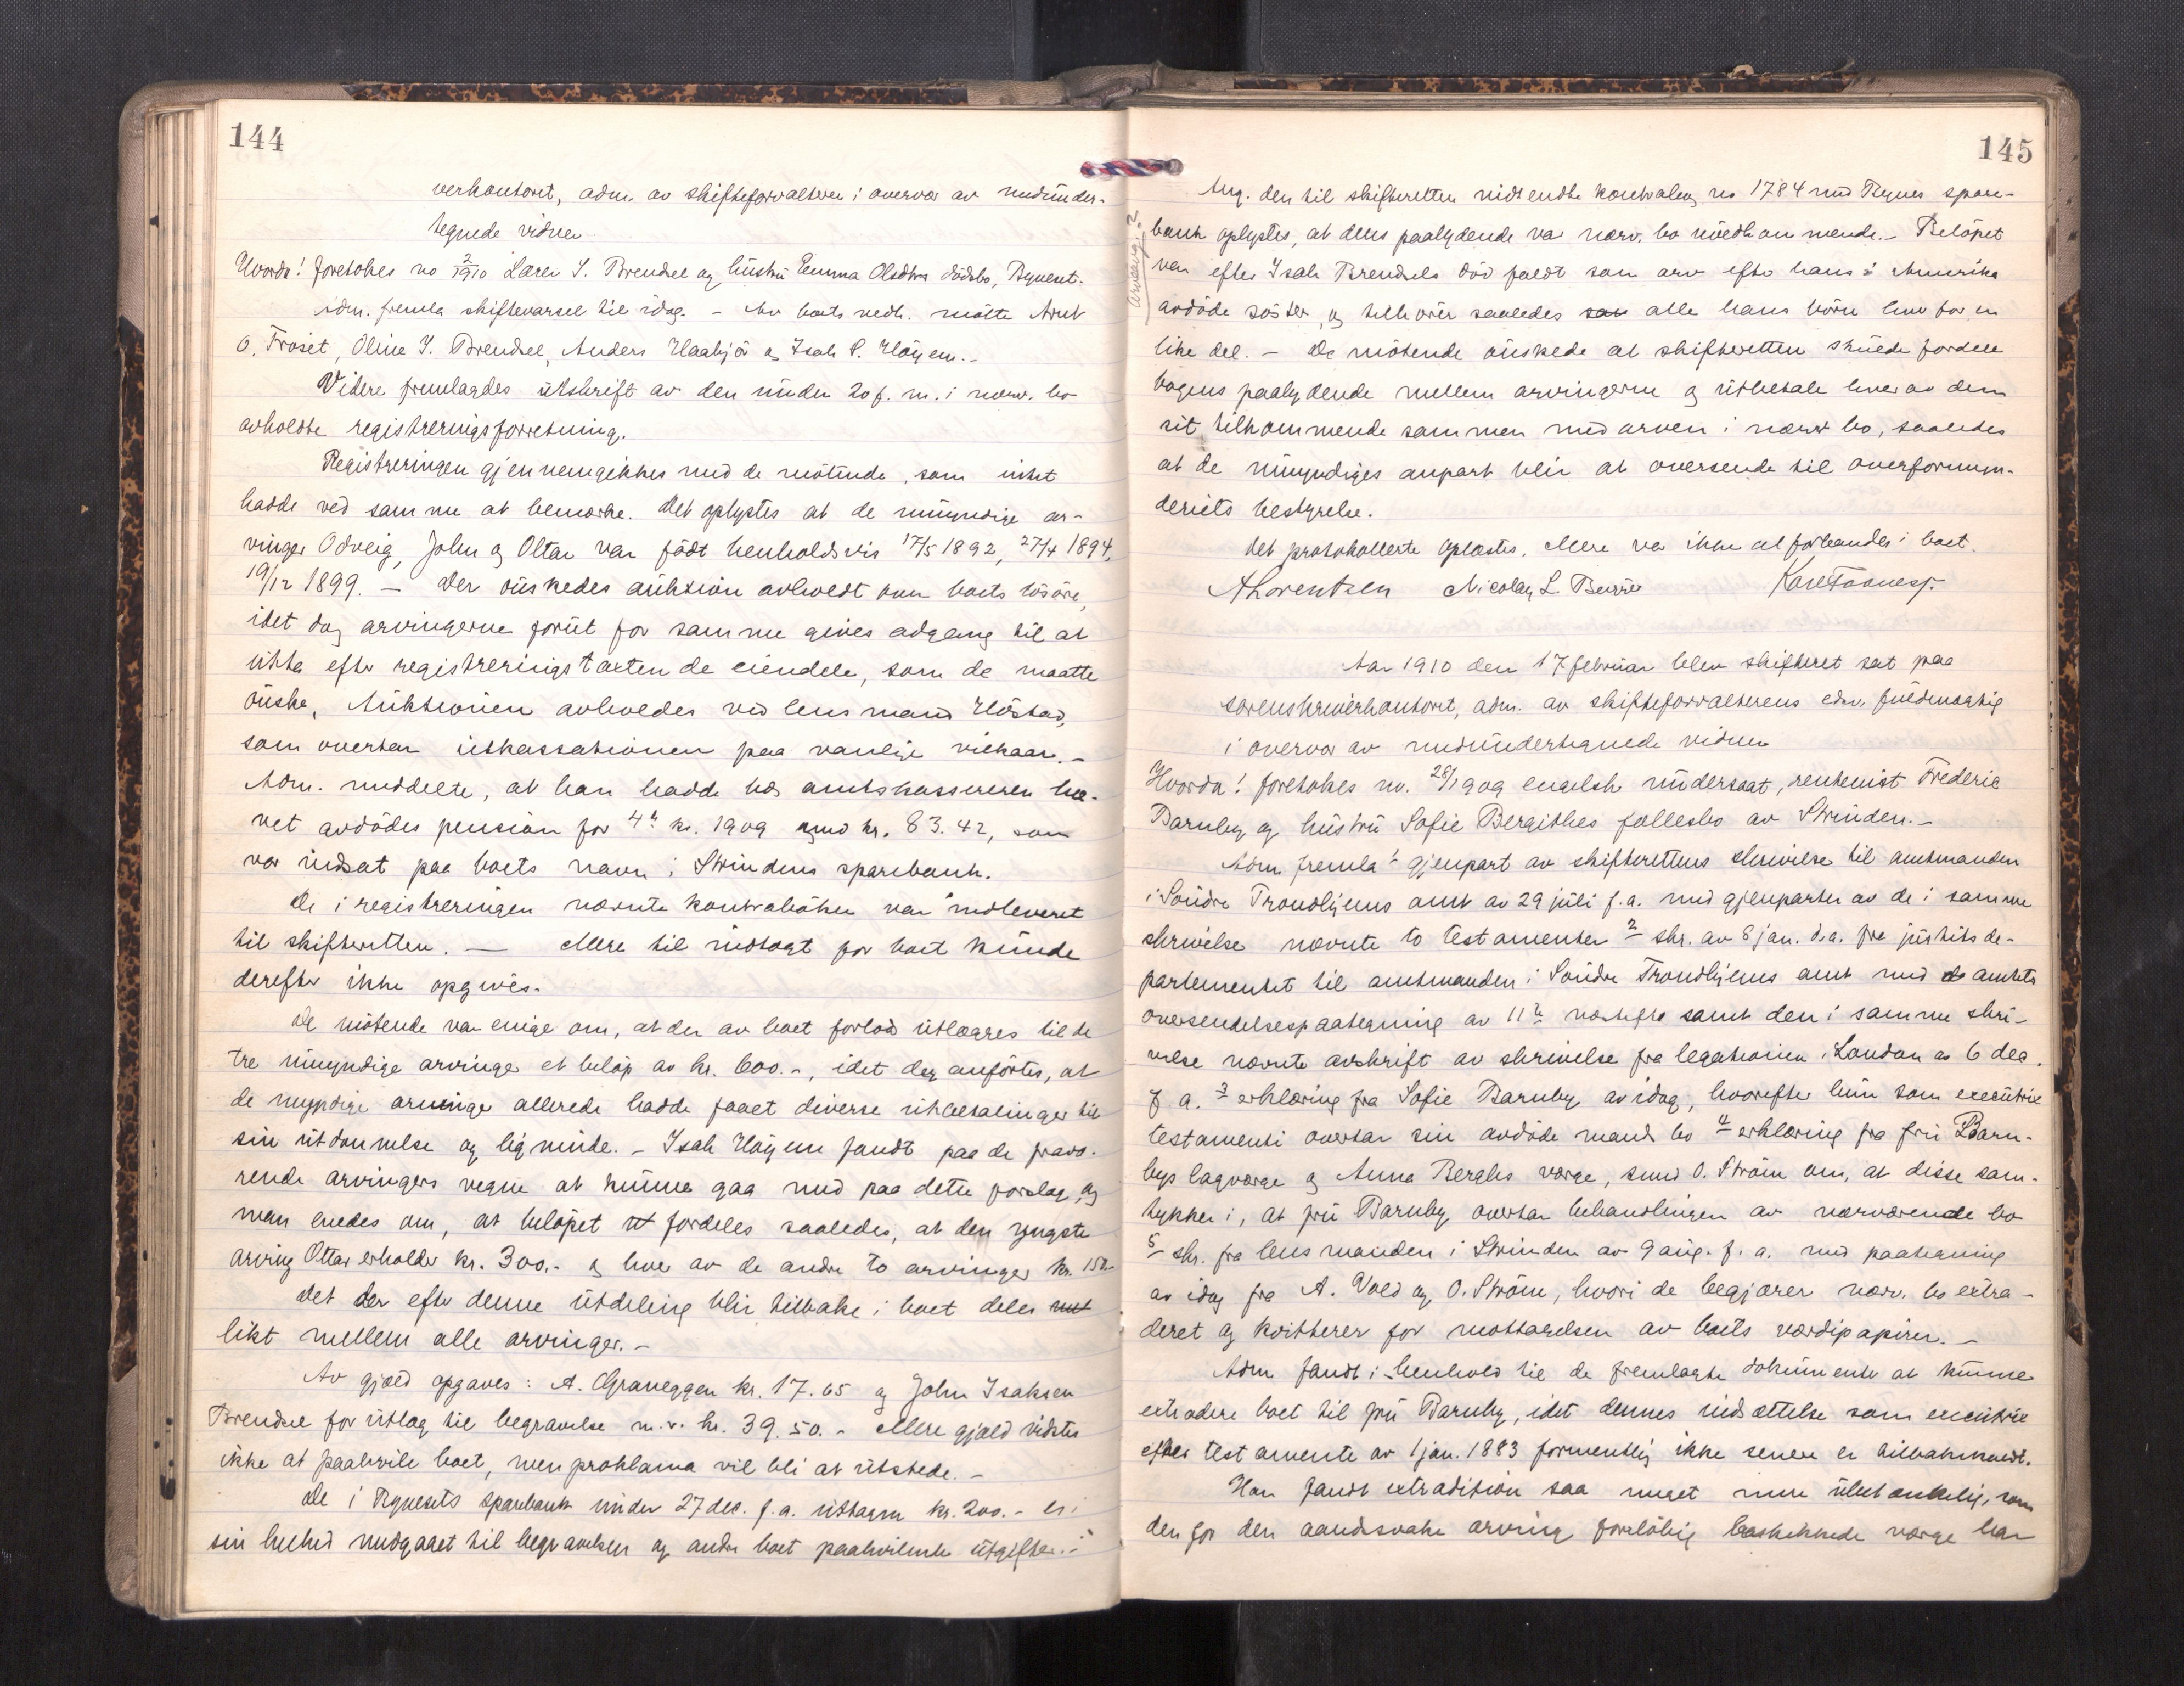 144
verkontoret, adm. av skifteforvalteren i overvær av medunder-
tegnede vidner
Hvorda! foretokes no 2/1910 Lærer I. Brendsel og hustru Emma Olsdtrs dødsbo, Byneset.
Adm. fremla skiftevarsel til idag. - Av boets vedk. møtte Arnt
O. Frøset, Oline I. Brendsel, Anders Haabjør og Isak P. Høyem. -
Videre fremlagdes utskrift av den under 20 f. m. i nærv. bo
avholdte registreringsforretning.
Registreringen gjennemgikkes med de møtende, som intet
hadde ved samme at bemerke. Det oplystes at de umyndige ar-
vinger Odveig, John og Ottar var født henholdsvis 17/5 1892, 27/4 1894,
19/12 1899. - Der ønskedes auktion avholdt over boets løsøre,
idet dog arvingerne forut for samme gives adgang til at
utta efter registreringstaxten de eiendele, som de maatte
ønske. Auktionen avholdes ved lensmand Høstad,
som overtar inkassationen paa vanlige vilkaar. -
Adm. meddelte, at han hadde hos amtskassereren hæ-
vet avdødes pension for 4de kv. 1909 med kr. 83.42, som
var indsat paa boets navn i Strindens sparebank.
De i registreringen nævnte kontrabøker var indleveret
til skifteretten. - Mere til indtægt for boet kunde
derefter ikke opgives.
De møtende var enige om, at der av boet forlods utlægges til de
tre umyndige arvinger et beløp av kr. 600.-, idet der anførtes, at
de myndige arvinger allerede hadde faaet diverse utbetalinger til
sin utdannelse og lignende. - Isak Høyem fandt paa de fravæ-
rende arvingers vegne at kunne gaa med paa dette forslag, og
man enedes om, at beløpet fordeles saaledes, at den yngste
arving Ottar erholder kr. 300.- og hver av de andre to arvinger kr. 150.-
Det der efter denne utdeling blir tilbake i boet deles
likt mellem alle arvinger. -
Av gjæld opgaves: A. Graneggen kr. 17.65 og John Isaksen
Brendsel for utlæg til begravelse m.v. kr. 39.50. - Mere gjæld vidstes
ikke at paahvile boet, men proklama vil bli at utstede. -
De i Bynesets sparebank under 27 dec. f.a. uttagne kr. 200.- er i
sin helhet medgaaet til begravelsen og andre boet paahvilende utgifter. -
145
Ang. den til skifteretten indsendte kontrabog no 1784 med Bynes spare-
bank oplystes, at dens paalydende var nærv. bo uvedkommende. - Beløpet
var efter Isak Brendsels død faldt som arv efter hans i Amerika
avdøde søster, og tilhører saaledes alle hans børn hver for en
like del. - De møtende ønskede at skifteretten skulde fordele
bogens paalydende mellem arvingerne og utbetale hver av dem
sit tilkommende sammen med arven i nærv. bo, saaledes
at de umyndiges anpart blir at oversende til overformyn-
deriets bestyrelse.
Det protokollerte oplæstes. Mere var ikke at forhandle i boet.
A Lorentzen Nicolay L. Kaare Faanes
Aar 1910 den 17 februar blev skifteret sat paa
sorenskriverkontoret, adm. av skifteforvalterens edsv. fuldmægtig
i overvær av medundertegnede vidner
Hvorda! foretokes no. 28/1909 engelsk undersaat, rentenist Frederic
Barnby og hustru Sofie Bergithes fællesbo av Strinden. -
Adm fremla 1 gjenpart av skifterettens skrivelse til amtmanden
i Søndre Trondhjems amt av 29 juli f.a. med gjenparter av de i samme
skrivelse nævnte to testamenter 2 skr. av 8 jan. d.a. fra justitsde-
partementet til amtmanden i Søndre Trondhjems amt med amtets
oversendelsespaategning av 11te næstefter samt den i samme skri-
velse nævnte avskrift av skrivelse fra legationen i London av 6 dec.
f. a. 3 erklæring fra Sofie Barnby av idag, hvorefter hun som executrix
testamenti overtar sin avdøde mands bo 4 erklæring fra fru Barn-
bys lagværge og Anna Berghs værge, smed O. Strøm om, at disse sam-
tykker i, at fru Barnby overtar behandlingen av nærværende bo
5 skr. fra lensmanden i Strinden av 9 aug. f. a. med paategning
av idag fra A. Vold og O. Strøm, hvori de begjærer nærv. bo extra-
deret og kvitterer for mottagelsen av boets værdipapirer. -
Adm fandt i henhold til de fremlagte dokumenter at kunne
extradere boet til fru Barnby, idet dennes indsættelse som executrix
efter testamente av 1 jan. 1883 formentlig ikke senere er tilbakekaldt.
Han fandt extradition saa meget mere ubetænkelig, som
den for den aandssvake arving foreløbig beskikkede værge har